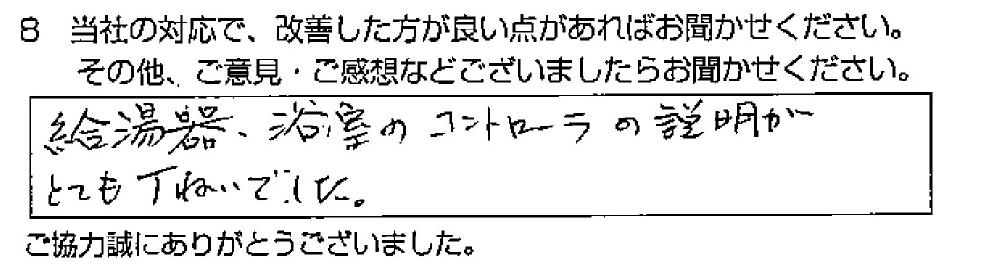 8 当社の対応で、改善した方が良い点があればお聞かせください。
その他、ご意見・ご感想などございましたらお聞かせください。
給湯器、浴室のコントローラの説明が
とても丁ねいでした。
ご協力誠にありがとうございました。